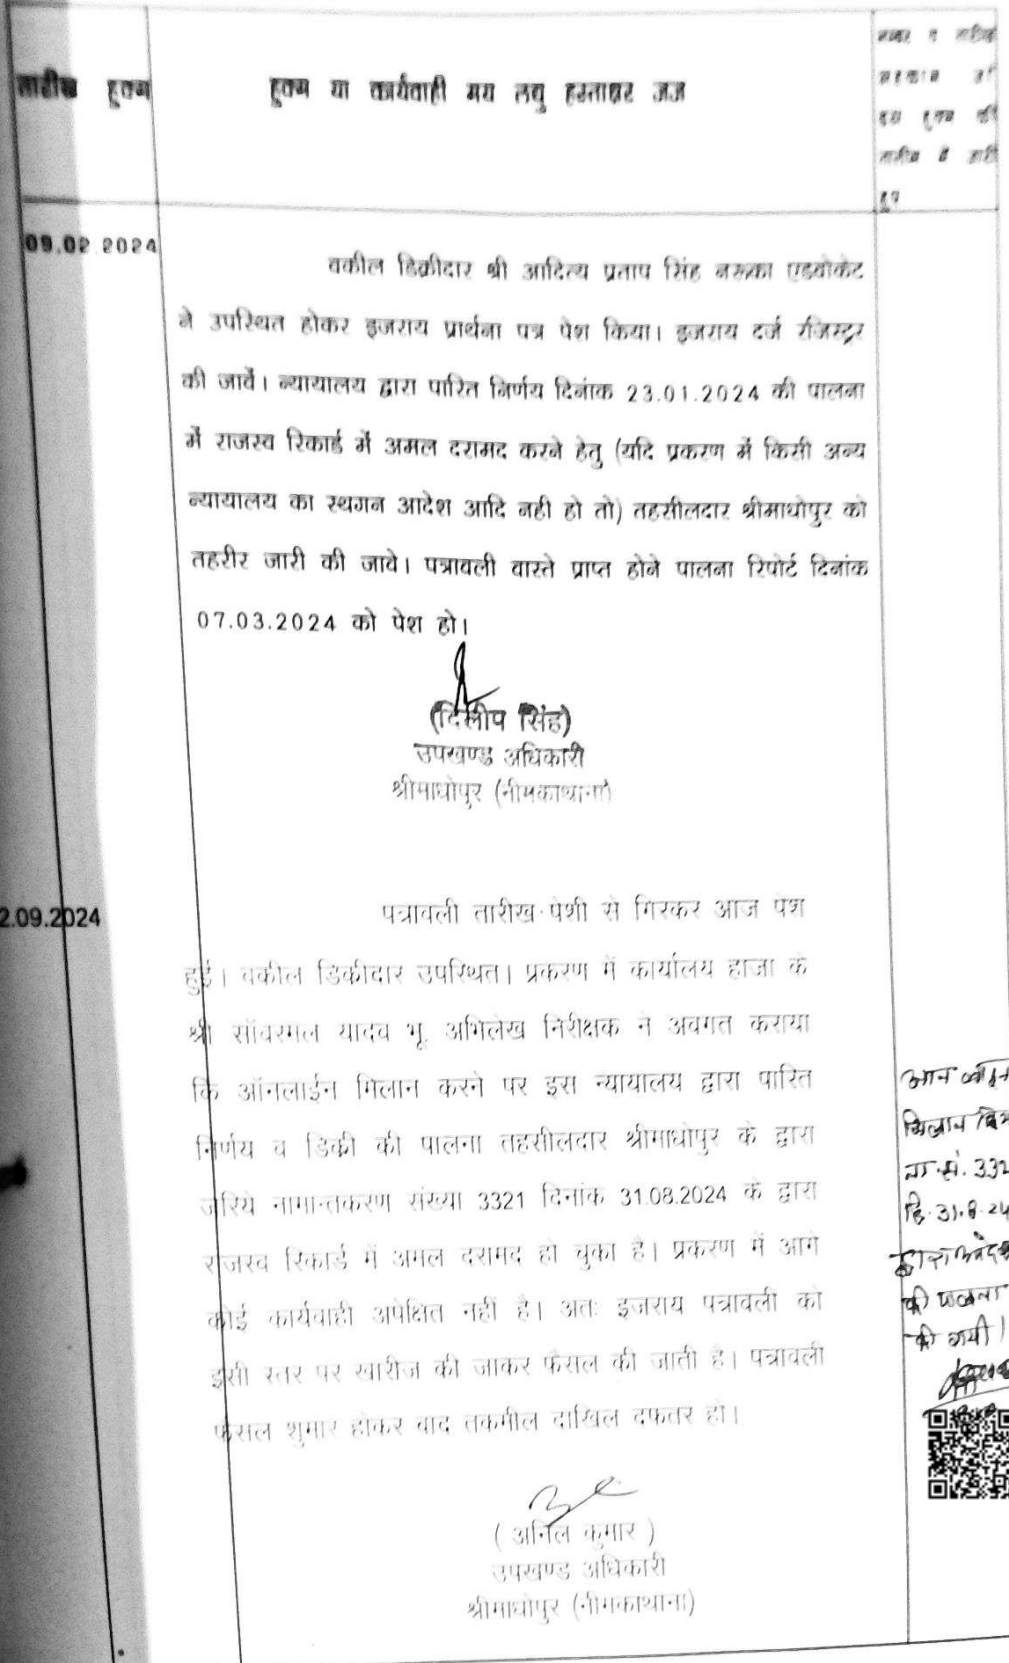 तारीख हुक्म
हुक्म या कार्यवाही मय लघु हस्ताक्षर जज
नम्बर व तारीख
अहकाम जो
इस हुक्म की
तामील में जारी
हुए
09.02 2024
वकील डिक्रीदार श्री आदित्य प्रताप सिंह नरूका एडवोकेट
ने उपस्थित होकर इजराय प्रार्थना पत्र पेश किया। इजराय दर्ज रजिस्ट्रर
की जावें। न्यायालय द्वारा पारित निर्णय दिनांक 23.01.2024 की पालना
में राजस्व रिकार्ड में अमल दरामद करने हेतु (यदि प्रकरण में किसी अन्य
न्यायालय का स्थगन आदेश आदि नही हो तो) तहसीलदार श्रीमाधोपुर को
तहरीर जारी की जावे। पत्रावली वास्ते प्राप्त होने पालना रिपोर्ट दिनांक
07.03.2024 को पेश हो।
(दिलीप सिंह)
उपखण्ड अधिकारी
श्रीमाधोपुर (नीमकाथाना)
2.09.2024
पत्रावली तारीख पेशी से गिरकर आज पेश
हुई। वकील डिकीदार उपस्थित। प्रकरण में कार्यालय हाजा के
श्री सॉवरमल यादव भू. अभिलेख निरीक्षक ने अवगत कराया
कि ऑनलाईन मिलान करने पर इस न्यायालय द्वारा पारित
निर्णय व डिकी की पालना तहसीलदार श्रीमाधोपुर के द्वारा
जरिये नामान्तकरण संख्या 3321 दिनांक 31.08.2024 के द्वारा
राजस्व रिकार्ड में अमल दरामद हो चुका है। प्रकरण में आगे
कोई कार्यवाही अपेक्षित नहीं है। अतः इजराय पत्रावली को
इसी स्तर पर खारीज की जाकर फैसल की जाती है। पत्रावली
फैसल शुमार होकर बाद तकमील दाखिल दफतर हो।
मिलान
ना.सं. 332
दि. 31.8.24
की पालना
की गयी।
( अनिल कुमार )
उपखण्ड अधिकारी
श्रीमाधोपुर (नीमकाथाना)